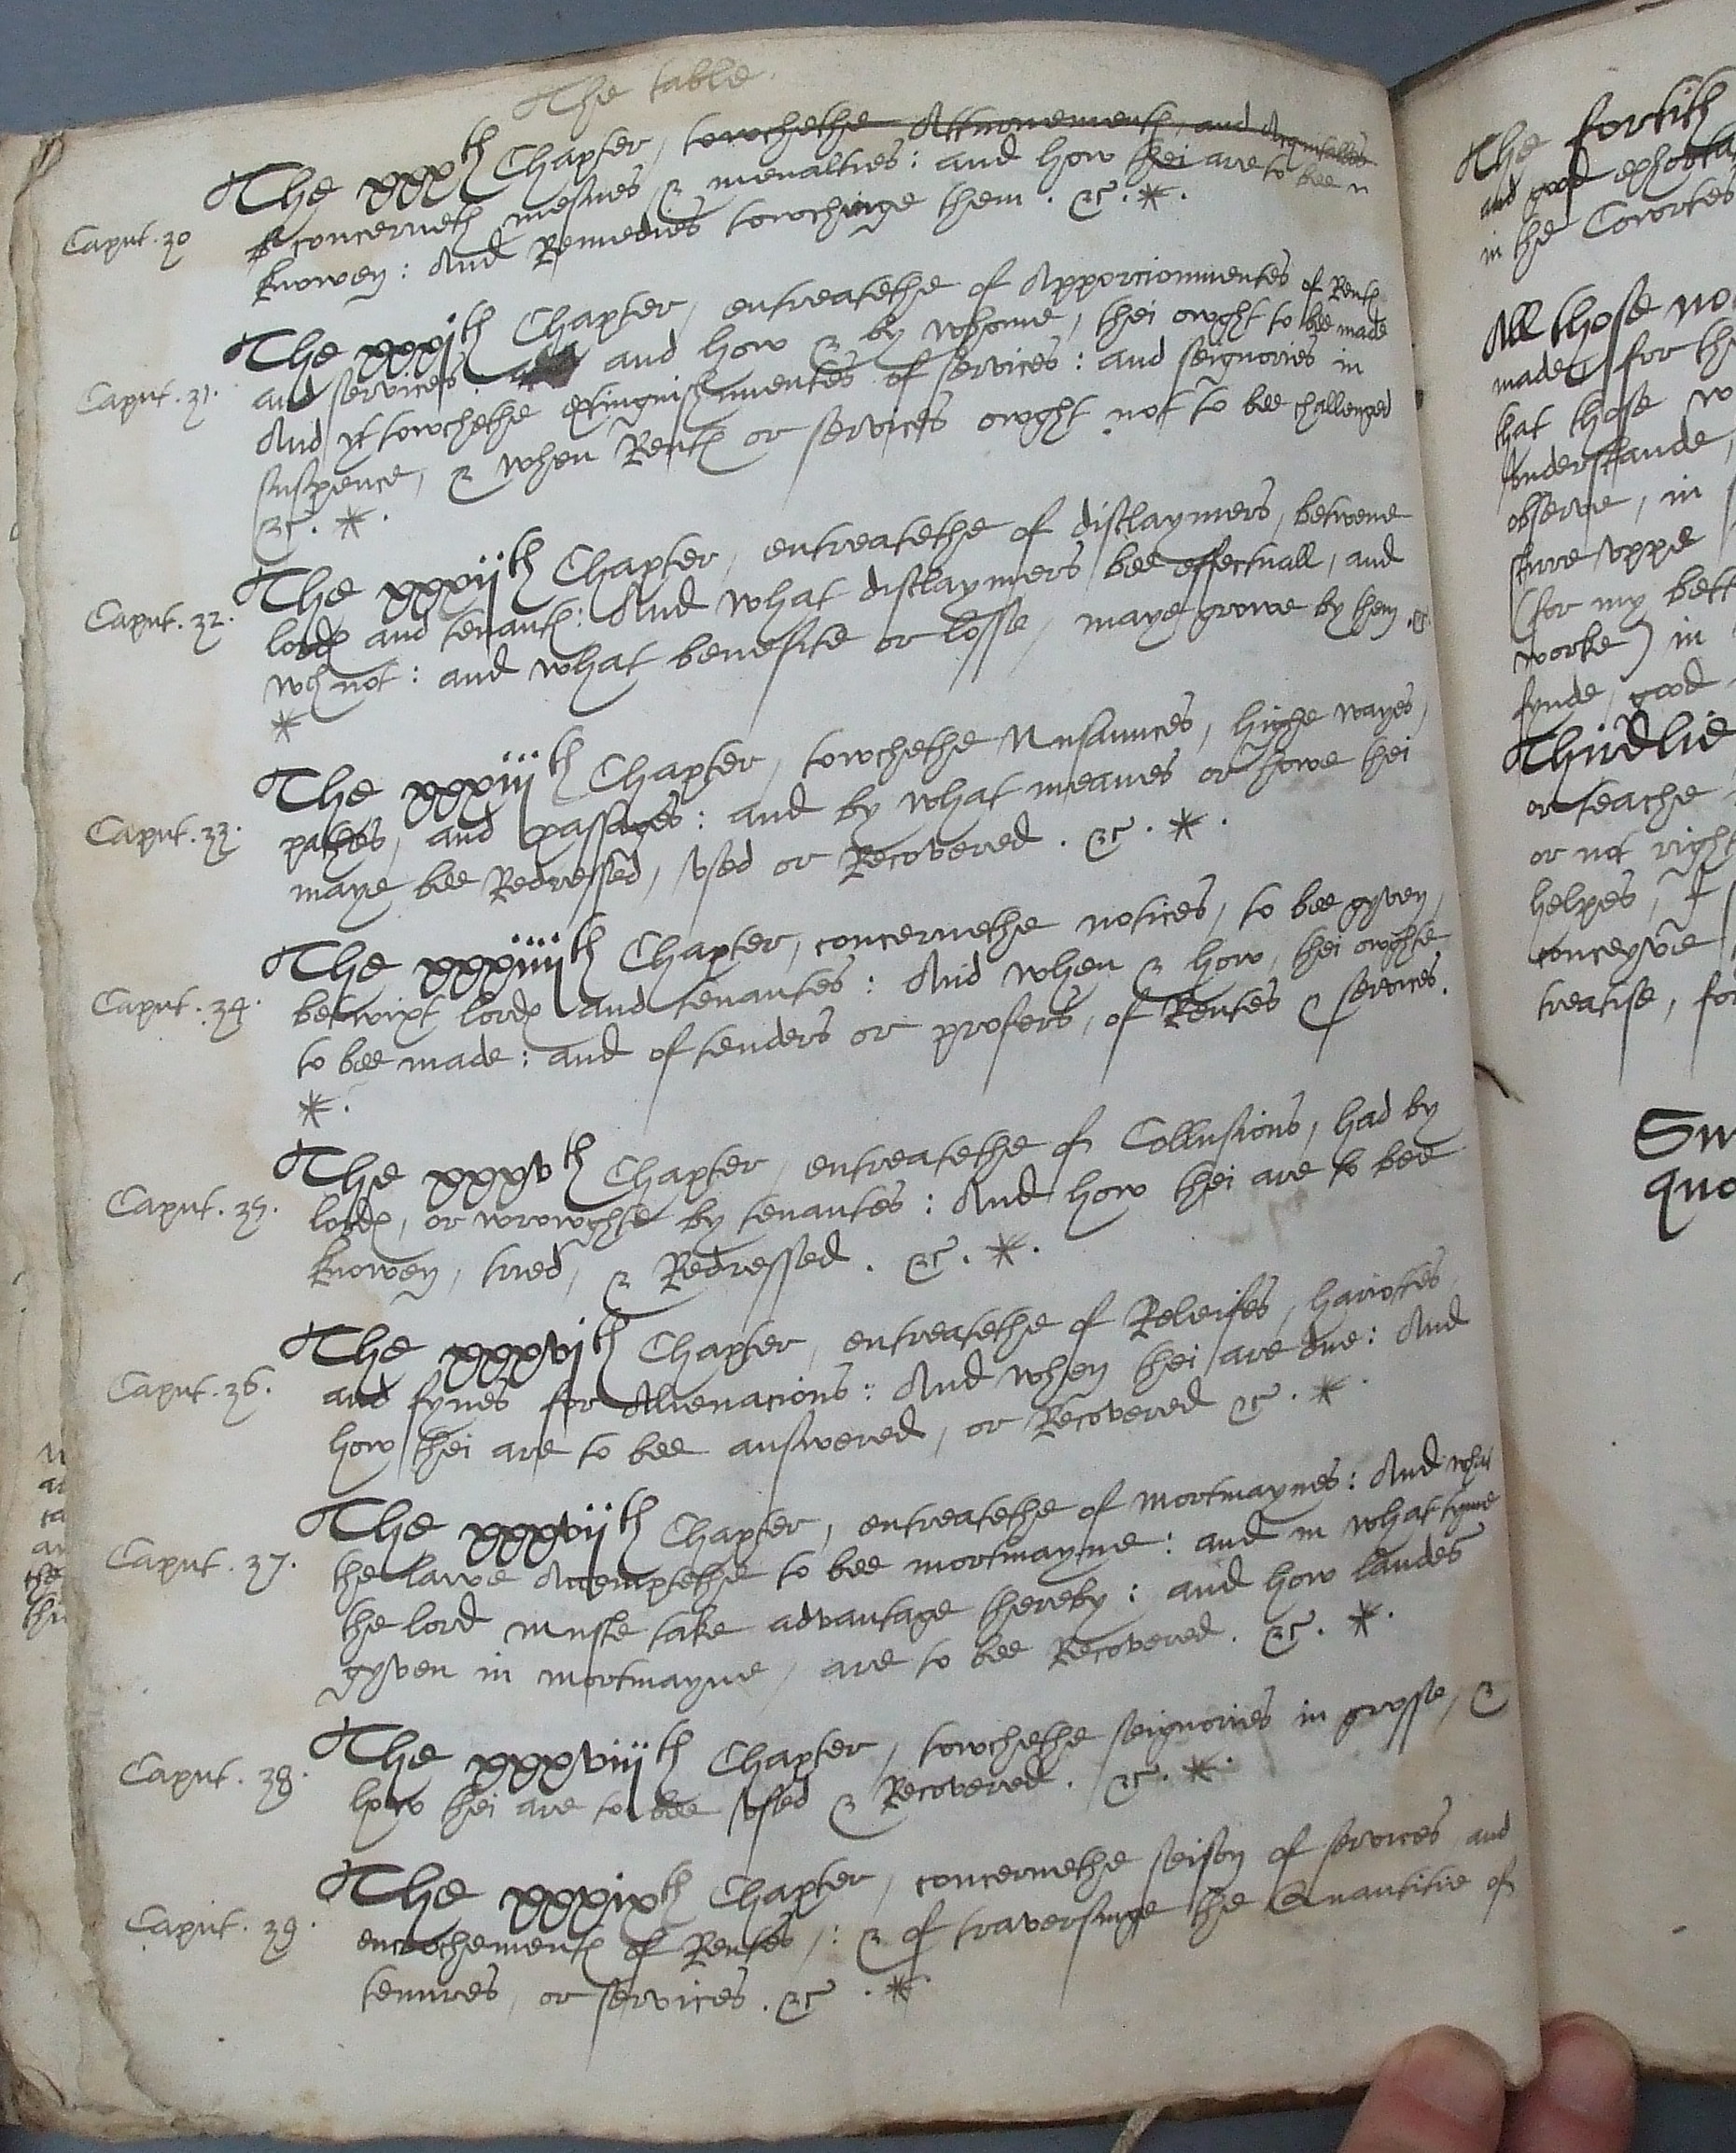 The table.
The xxxth Chapter, towchethe Attornementes, and Acquitalles
Caput. 30
concerneth mesnes & menalties: and how thei are to bee
knowen: And Remedies towchinge them. &c. *.
The xxxith Chapter, entreatethe of Apporcionmentes of Rentes
Caput. 31.
and services and how & by whome, thei owght to bee made
And yt towchethe extinguishmentes of services: and seignories in
suspence, & when Rentes or services owght not to bee challenged
&c. *.
The xxxiith Chapter, entreatethe of disclaymers, betwene
Caput. 32.
lordes and tenantes: And what disclaymers bee effectuall, and
wch not: and what benefite or losse, maye growe by them. &c.
*
The xxxiiith Chapter, towchethe Nusaunces, highe wayes,
Caput. 33.
pathes, and passages: and by what meanes or howe thei
maye bee Redressed, vsed or Recovered. &c. *.
The xxxiiiith Chapter, concernethe notices, to bee gyven,
Caput. 34.
betwixt lordes and tenantes: And when & how, thei owghte
to bee made: and of tenders or profers, of Rentes & services.
*.
The xxxvth Chapter, entreatethe of Collusions, had by
Caput. 35.
lordes, or wrowghte by tenantes: And how thei are to bee
knowen, tried, & Redressed. &c. *.
The xxxvith Chapter, entreatethe of Releifes, hariottes,
Caput. 36.
and fynes for Alienacions: And when thei are due: And
how thei are to bee answered, or Recovered &c. *.
The xxxviith Chapter, entreatethe of mortmaynes: And what
Caput. 37.
the lawe Attemptethe to bee mortmayne: and in what tyme
the lord muste take advantage thereby: and how landes
gyven in mortmayne, are to bee Recovered. &c. *.
The xxxviiith Chapter, towchethe seignories in grosse, &
Caput. 38.
how thei are to bee vsed & Recovered. &c. *.
The xxxixth Chapter, concernethe seison of services, and
Caput. 39.
encrochementes of Rentes,: & of traversinge the Quantitie of
tenures, or services. &c. *
The fortith
and good
in the Cowrtes
All those
made for
that those
vnderstande,
observe, in
vppe
(for my
worke) in
fynde, good
Thirdlie
or teache
or not right
helpes, I
conceyve
treatise, for